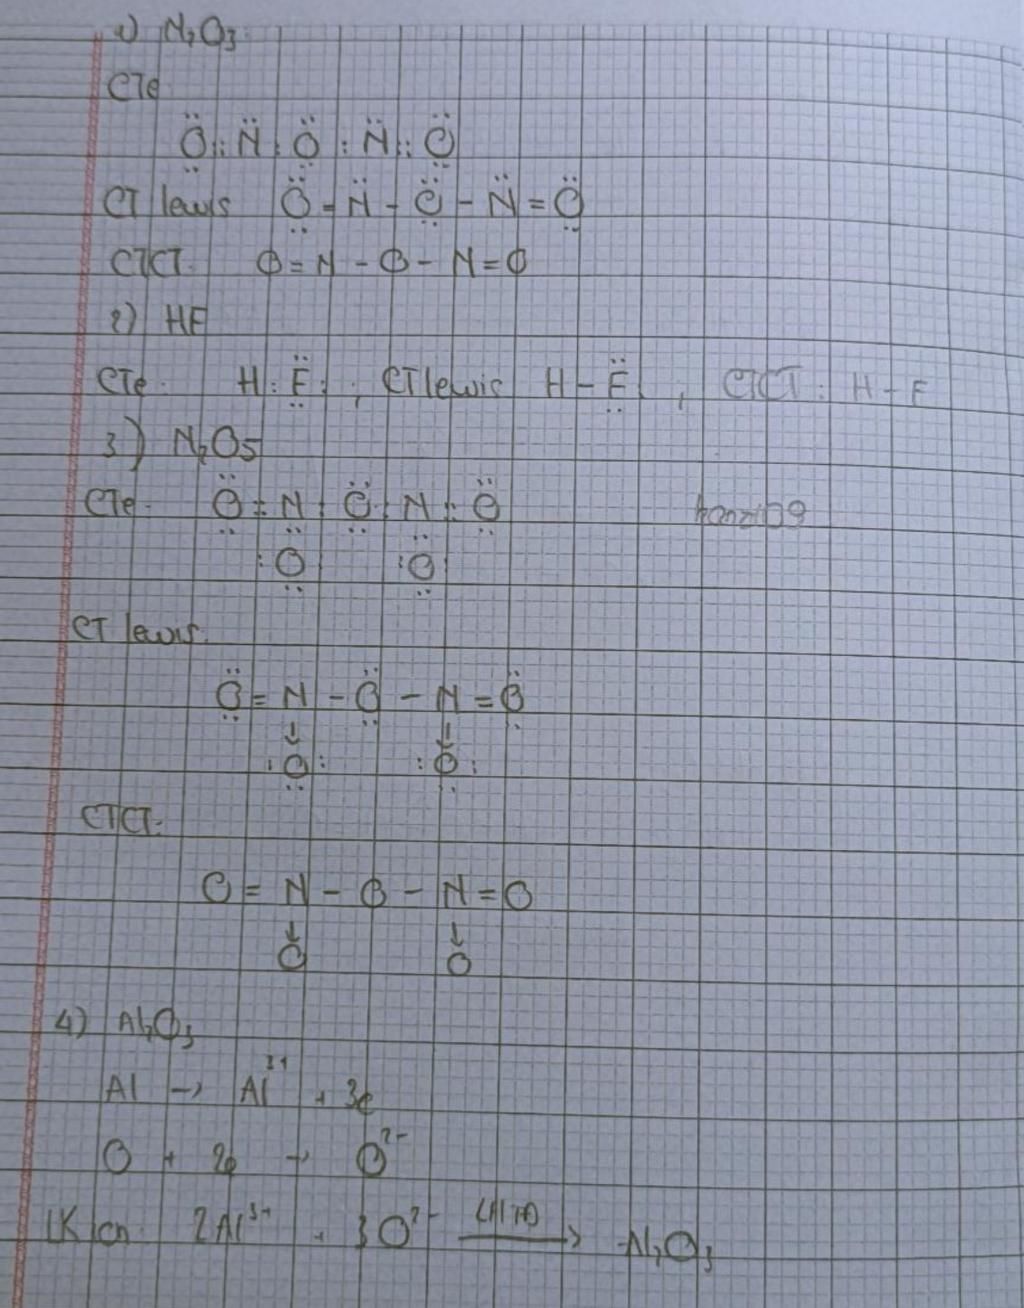 1) N₂O₃
CTe
:Ö::N̈:Ö:N̈::Ö:
CT lewis Ö=N̈-Ö-N̈=Ö
CTCT O=N-O-N=O
2) HF
CTe: H:F̈: ; CT lewis H-F̈: , CTCT: H-F
3) N₂O₅
CTe: Ö::N:Ö:N::Ö
:O :O:
CT lewis:
Ö=N-Ö-N=Ö
↓ ↓
:O: :O:
CTCT:
O=N-O-N=O
↓ ↓
O O
4) Al₂O₃
Al → Al³⁺ + 3e
O + 2e → O²⁻
LK ion: 2Al³⁺ + 3O²⁻ → Al₂O₃